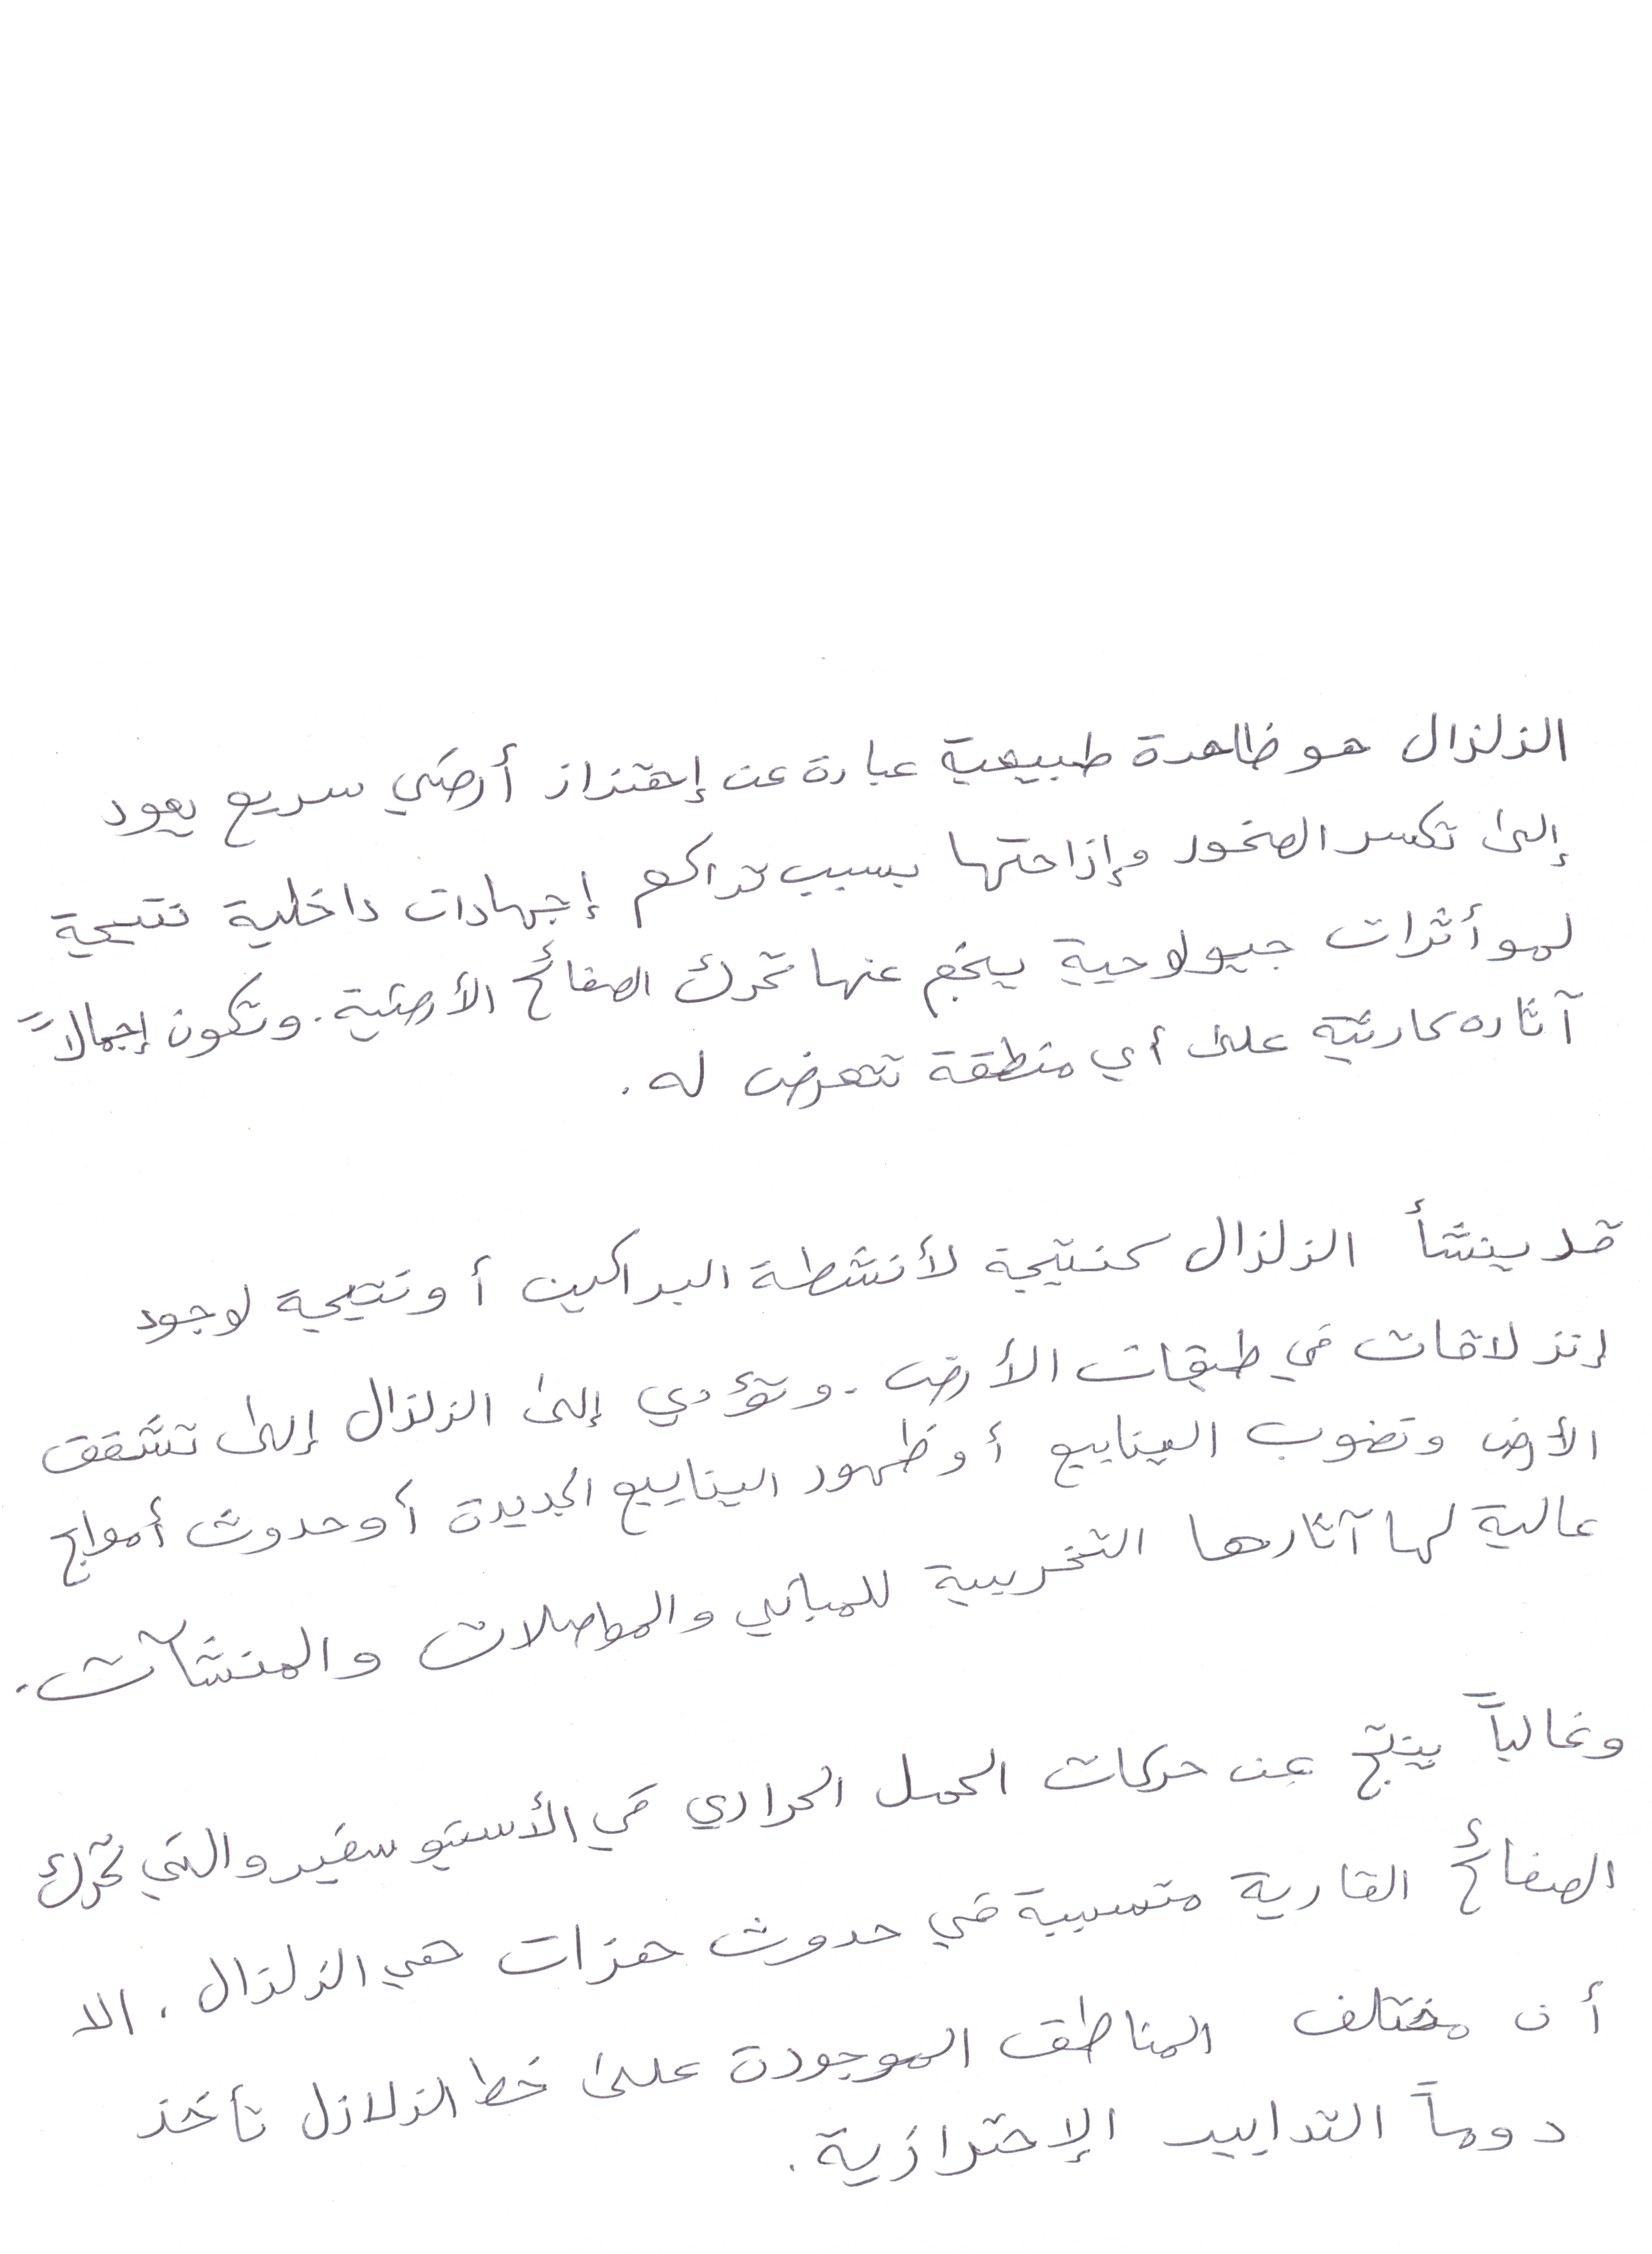 الزلزال هو ظاهرة طبيعية عبارة عن إهتزاز أرضي سريع يعود
إلى تكسر الصخور وإزاحتها بسبب تراكم إجهادات داخلية نتيجة
لموأثرات جيولوجية ينجم عنها تحرك الصفائح الأرضية. وتكون إجمالاً
آثاره كارثية على أي منطقة تتعرض له.
قد ينشأ الزلزال كنتيجة لأنشطة البراكين أو نتيجة لوجود
إنزلاقات في طبقات الأرض. وتؤدي إلى الزلزال إلى تشقق
الأرض ونضوب الينابيع أو ظهور الينابيع الجديدة أو حدوث أمواج
عالية لها آثارها التخريبية للمباني والمواصلات والمنشآت.
وغالباً ينتج عن حركات الحمل الحراري في الأستيوسفير والتي تحرك
الصفائح القارية متسببة في حدوث هزات هي الزلزال. الا
أن مختلف المناطق الموجودة على خط الزلازل تأخذ
دوماً التدابير الإحترازية.